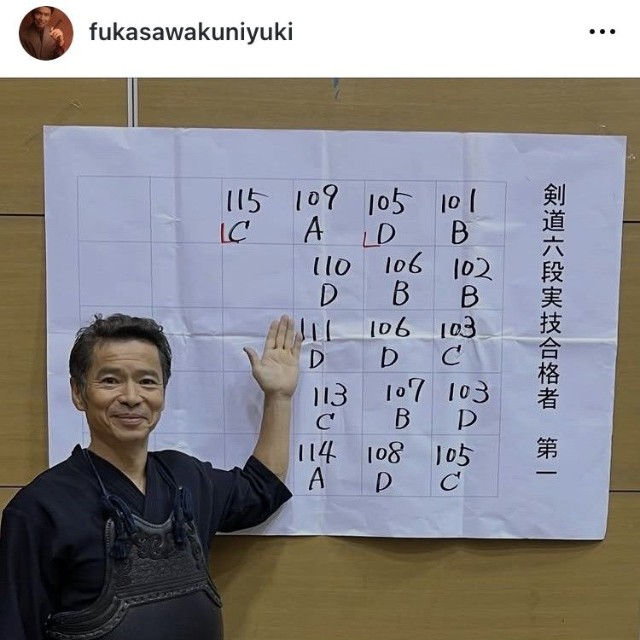 fukasawakuniyuki
剣道六段実技合格者 第一
101 B
102 B
103 C
103 D
105 C
105 D
106 B
106 D
107 B
108 D
109 A
110 D
111 D
113 C
114 A
115 C